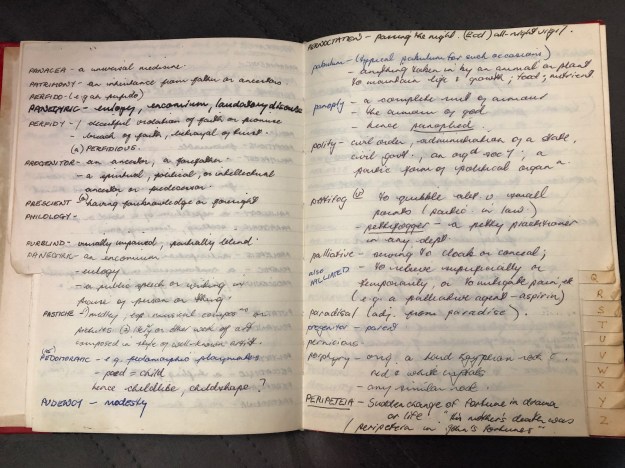 PANACEA - a universal medicine.
PATRIMONY - an inheritance from father or ancestors.
PERFIDO - (e.g. an perfido)
PANEGYRIC - eulogy, encomium, laudatory discourse
PERFIDY - / deceitful violation of faith or promise
- breach of faith, betrayal of trust.
(a) PERFIDIOUS.
PROGENITOR - an ancestor, a forefather
- a spiritual, political, or intellectual
ancestor or predecessor.
PRESCIENT (a) having foreknowledge or foresight
PHILOLOGY -
PURBLIND - visually impaired, partially blind.
PANEGYRIC an encomium
- eulogy
- a public speech or writing in
praise of person or thing
PASTICHE - medley, esp. musical compo or
picture (2) lit'y or other work of art
composed in style of well-known artist.
PEDOMORPHIC - e.g. pedomorphic playmates
- paed = child
hence - childlike, childshape?
PUDENCY - modesty
PERNOCTATION - passing the night. (Eccl) all-night vigil.
pabulum - (typical pabulum for such occasions)
- anything taken in by an animal or plant
to maintain life & growth; food, nutrient
panoply - a complete suit of armour
- the armour of god
- hence panoplied.
polity - civil order, administration of a state,
civil govt, an org. soc'y; a
partic form of political organ n.
pettifog (v) to quibble abt. small
points (partic in law)
- pettifogger - a petty practitioner
in any dept
palliative - serving to cloak or conceal;
also PALLIATED - to relieve superficially or
temporarily, or to mitigate pain, etc
(e.g. a palliative agent - aspirin)
paradisal (adj. from paradise).
progenitor - parent
pernicious -
porphyry - orig. a hard Egyptian rock
red & white crystals
- any similar rock.
PERIPETEIA - Sudden change of fortune in drama
or life. "his mother's death was
/ peripeteia in John's fortunes"
Q
R
S
T
U
V
W
X
Y
Z